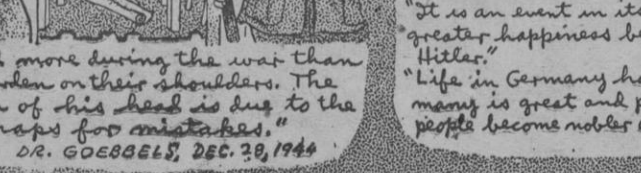 more during the war than
rden on their shoulders. The
of his head is due to the
raps for mistakes."
DR. GOEBBELS, DEC. 28, 1944
"It is an event in it
greater happiness be
Hitler."
"Life in Germany h
many is great and
people become nobler